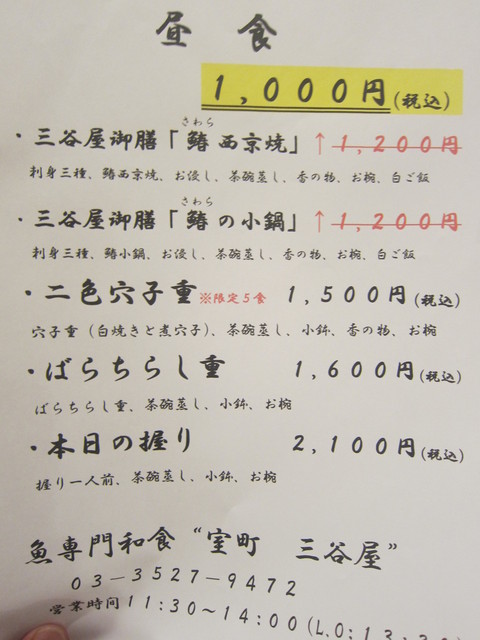 昼食
1,000円(税込)
さわら
・三谷屋御膳「鰆西京焼」↑1,200円
刺身三種、鰆西京焼、お浸し、茶碗蒸し、香の物、お椀、白ご飯
さわら
・三谷屋御膳「鰆の小鍋」↑1,200円
刺身三種、鰆小鍋、お浸し、茶碗蒸し、香の物、お椀、白ご飯
・二色穴子重※限定5食 1,500円(税込)
穴子重(白焼きと煮穴子)、茶碗蒸し、小鉢、香の物、お椀
・ばらちらし重 1,600円(税込)
ばらちらし重、茶碗蒸し、小鉢、お椀
・本日の握り 2,100円(税込)
握り一人前、茶碗蒸し、小鉢、お椀
魚専門和食“室町 三谷屋”
03-3527-9472
営業時間11:30~14:00(L.O:13: